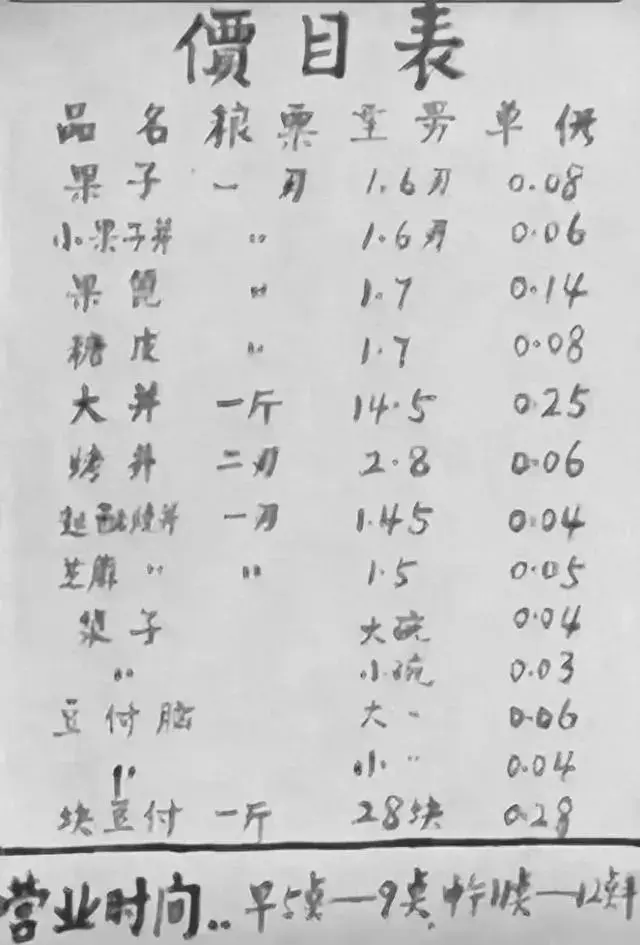 價目表
品名 粮票 重另 单价
果子 一刃 1.6刃 0.08
小果子并 〃 1.6刃 0.06
果篦 〃 1.7 0.14
糖皮 〃 1.7 0.08
大并 一斤 14.5 0.25
烤并 二刃 2.8 0.06
烧并 一刃 1.45 0.04
芝麻〃 〃 1.5 0.05
浆子 大碗 0.04
〃 小碗 0.03
豆付脑 大〃 0.06
〃 小〃 0.04
块豆付 一斤 28块 0.28
营业时间.. 早5点—9点,中午11点—12点半